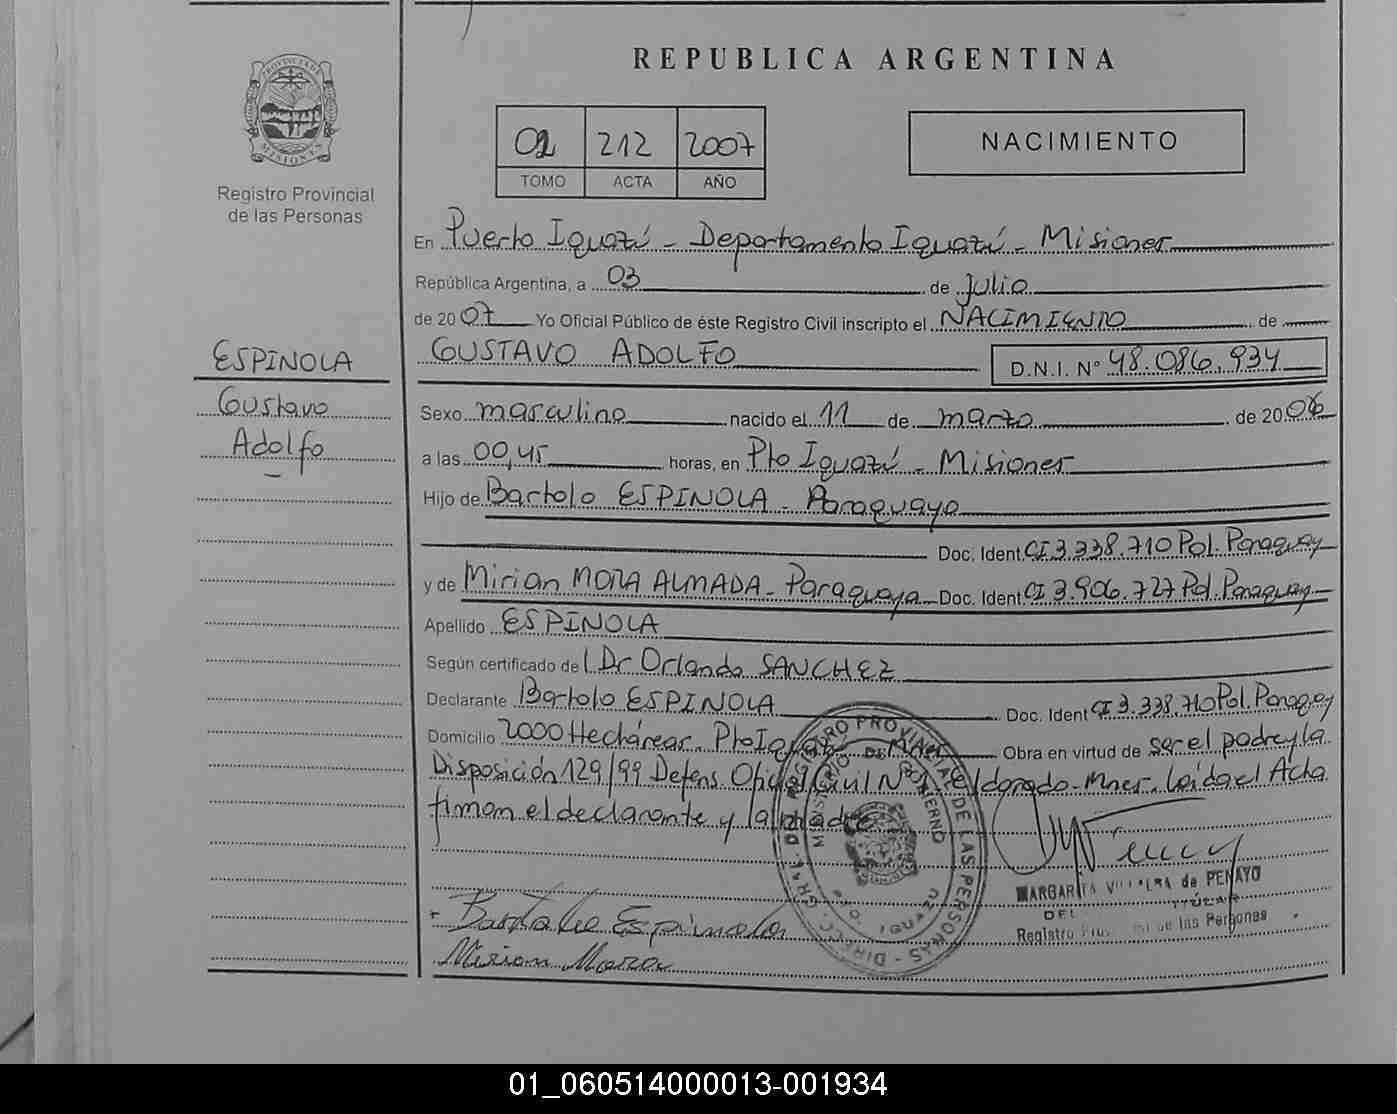 REPUBLICA ARGENTINA
PROVINCIA DE
MISIONES
Registro Provincial
de las Personas
02 212 2007
TOMO ACTA AÑO
NACIMIENTO
En Puerto Iguazú - Departamento Iguazú - Misiones
República Argentina, a 03 de Julio
de 2007 Yo Oficial Público de éste Registro Civil inscripto el NACIMIENTO de
GUSTAVO ADOLFO D.N.I. N° 48.086.934
ESPINOLA
Gustavo
Adolfo
Sexo masculino nacido el 11 de marzo de 2006
a las 00,45 horas, en Pto Iguazú - Misiones
Hijo de Bartolo ESPINOLA - Paraguayo
Doc. Ident. CI 3.338.710 Pol. Paraguay
y de Mirian MORA ALMADA - Paraguaya Doc. Ident. CI 3.906.727 Pol. Paraguay
Apellido ESPINOLA
Según certificado del Dr Orlando SANCHEZ
Declarante Bartolo ESPINOLA Doc. Ident CI 3.338.710 Pol. Paraguay
Domicilio 2000 Hectáreas. Pto Iguazú - Obra en virtud de ser el padre y la
Disposición 129/99 Defens. Oficial Civil N° Eldorado - Mnes. Leída el Acta
firman el declarante y la madre
DIRECC. GRAL. DEL REGISTRO PROVINCIAL DE LAS PERSONAS
MINISTERIO DE GOBIERNO
MARGARITA de PENAYO
TITULAR
DEL
Registro de las Personas
Bartolo Espinola
Mirian Mora
01_060514000013-001934